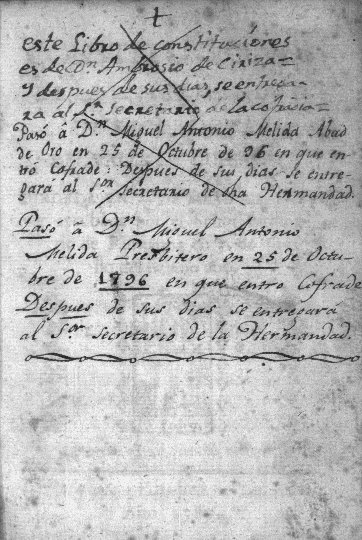 este Libro de constituciones
es de Dn. Ambrosio de Ciriza=
Y despues de sus dias se entrega-
ra al Sr. Secretario de la cofradia=
Pasó â Dn. Miguel Antonio Melida Abad
de Oro en 25 de Octubre de 96 en que en-
tró Cofade: Despues de sus dias se entre-
gara al sor. secretario de dha Hermandad.
Pasó â Dn. Miguel Antonio
Melida Presbitero en 25 de Octu-
bre de 1796 en que entro Cofrade
Despues de sus dias se entregará
al Sor. secretario de la Hermandad.